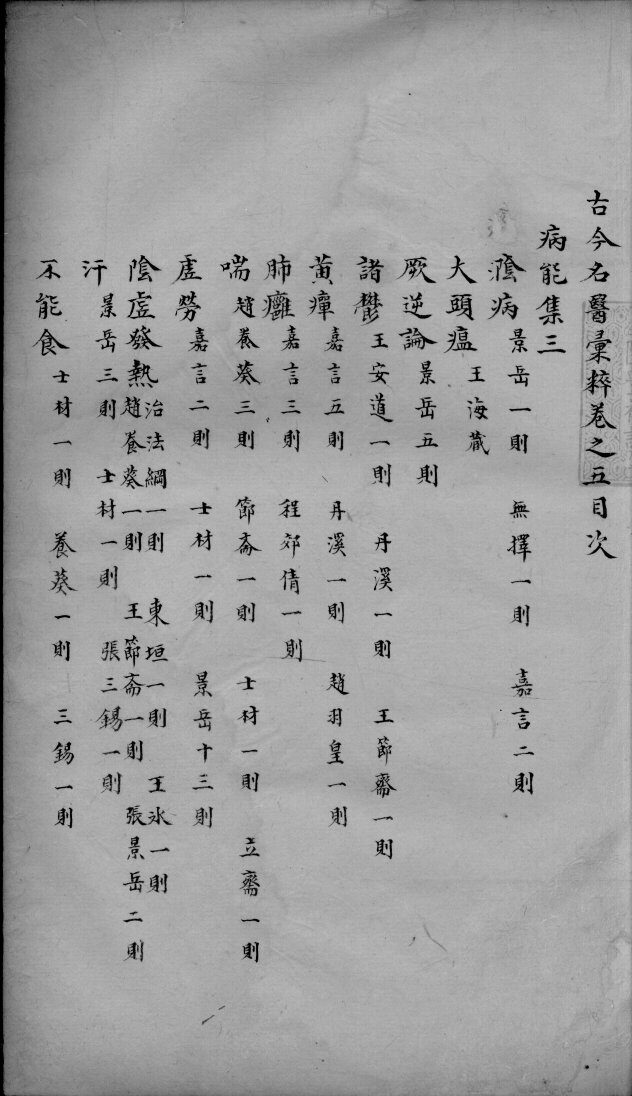 古今名醫彙粹卷之五目次
病能集三
陰病 景岳一則 無擇一則 嘉言二則
大頭瘟 王海藏
厥逆論 景岳五則
諸鬱 王安道一則 丹溪一則 王節齋一則
黄癉 嘉言五則 丹溪一則 趙羽皇一則
肺癰 嘉言三則 程郊倩一則
喘 趙養葵三則 節齋一則 士材一則 立齋一則
虛勞 嘉言二則 士材一則 景岳十三則
陰虛發熱 治法綱一則 東垣一則 王氷一則
趙養葵一則 王節齋一則 張景岳二則
汗 景岳三則 士材一則 張三錫一則
不能食 士材一則 養葵一則 三錫一則